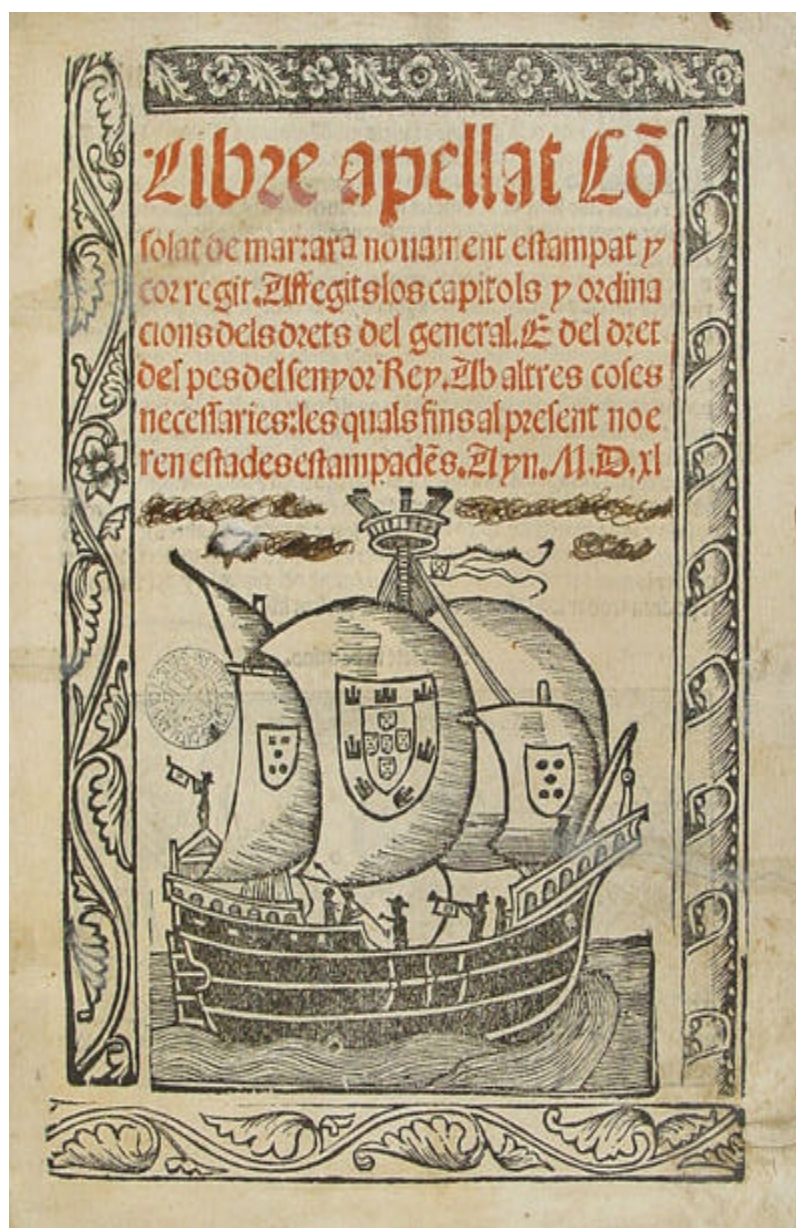 Libre apellat Cō
solat de mar:ara nouament estampat y
corregit. Affegits los capitols y ordina
cions dels drets del general. E del dret
del pes del senyor Rey. Ab altres coses
necessaries: les quals fins al present no e
ren estades estampadēs. Ayn. M.D.xl